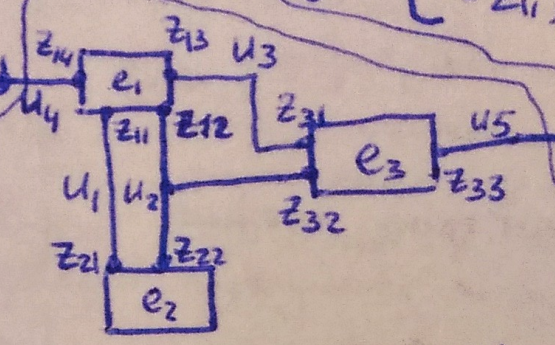 z14 z13 u3
e1
u4 z11 z12 z31 u5
e3
u1 u2 z33
z32
z21 z22
e2